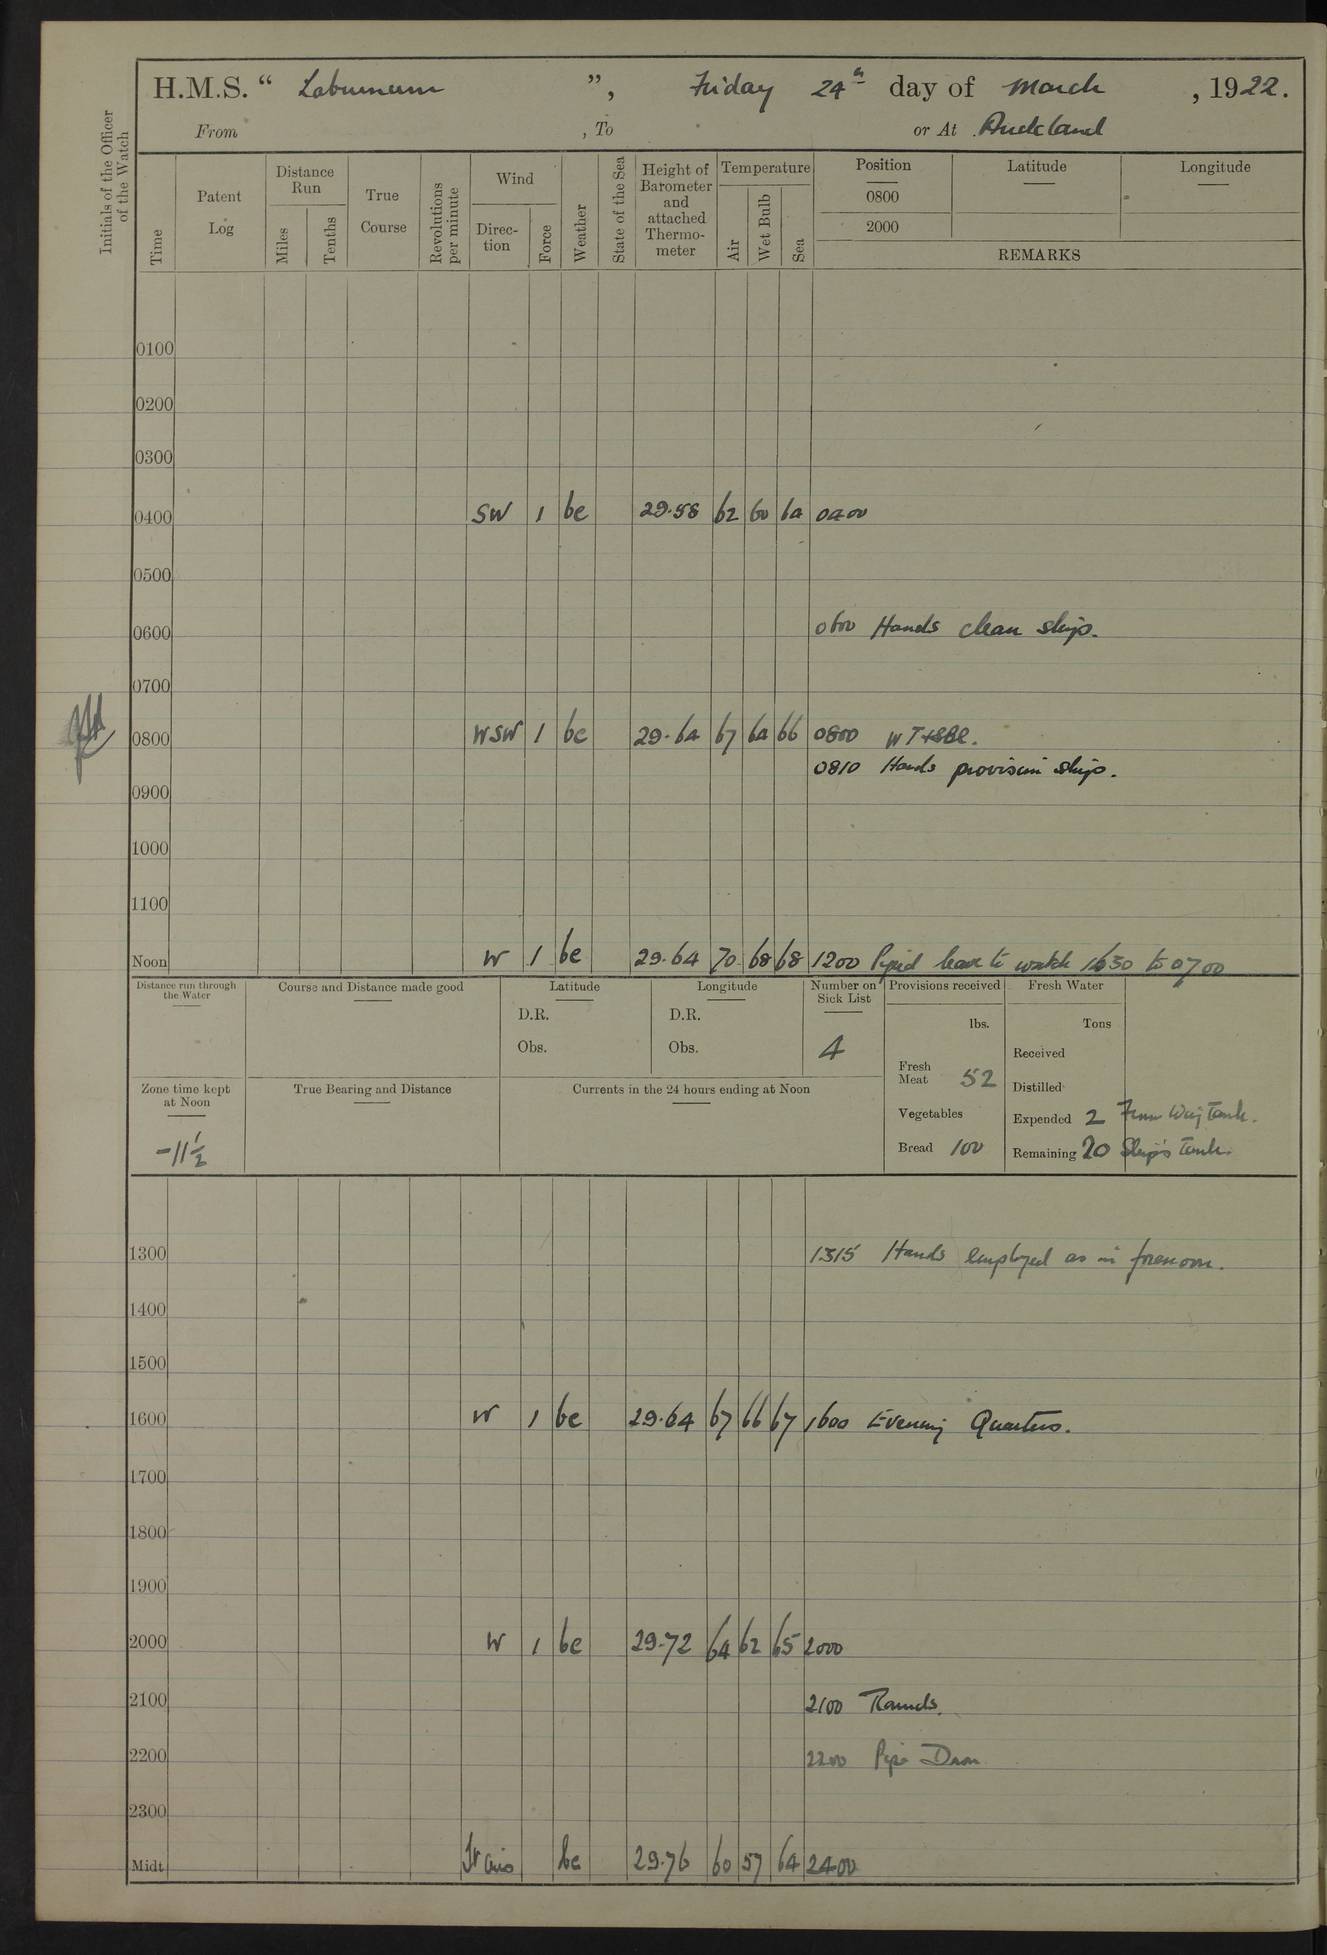 H.M.S. “ Laburnum ”, Friday 24th day of March , 1922.
From , To or At Auckland
Initials of the Officer of the Watch
Time
Patent Log
Distance Run
Miles
Tenths
True Course
Revolutions per minute
Wind
Direc-tion
Force
Weather
State of the Sea
Height of Barometer and attached Thermo-meter
Temperature
Air
Wet Bulb
Sea
Position Latitude Longitude
0800
2000
REMARKS
0100
0200
0300
0400 SW 1 bc 29.58 62 60 64 0400
0500
0600 0600 Hands clean ship.
0700
0800 WSW 1 bc 29.64 67 64 66 0800
0810 Hands provision ship.
0900
1000
1100
Noon W 1 bc 29.64 70 68 68 1200 Piped leave to watch 1630 to 0700
Distance run through the Water
Course and Distance made good
Latitude
D.R.
Obs.
Longitude
D.R.
Obs.
Number on Sick List
4
Provisions received
lbs.
Fresh Meat 52
Vegetables
Bread 100
Fresh Water
Tons
Received
Distilled
Expended 2 From Wing Tank.
Remaining 20 Ship's Tank.
Zone time kept at Noon
-11 1/2
True Bearing and Distance
Currents in the 24 hours ending at Noon
1300 1315 Hands employed as in forenoon.
1400
1500
1600 W 1 bc 29.64 67 66 67 1600 Evening Quarters.
1700
1800
1900
2000 W 1 bc 29.72 64 62 65 2000
2100 2100 Rounds.
2200 2200 Pipe Down
2300
Midt bc 29.76 60 57 64 2400